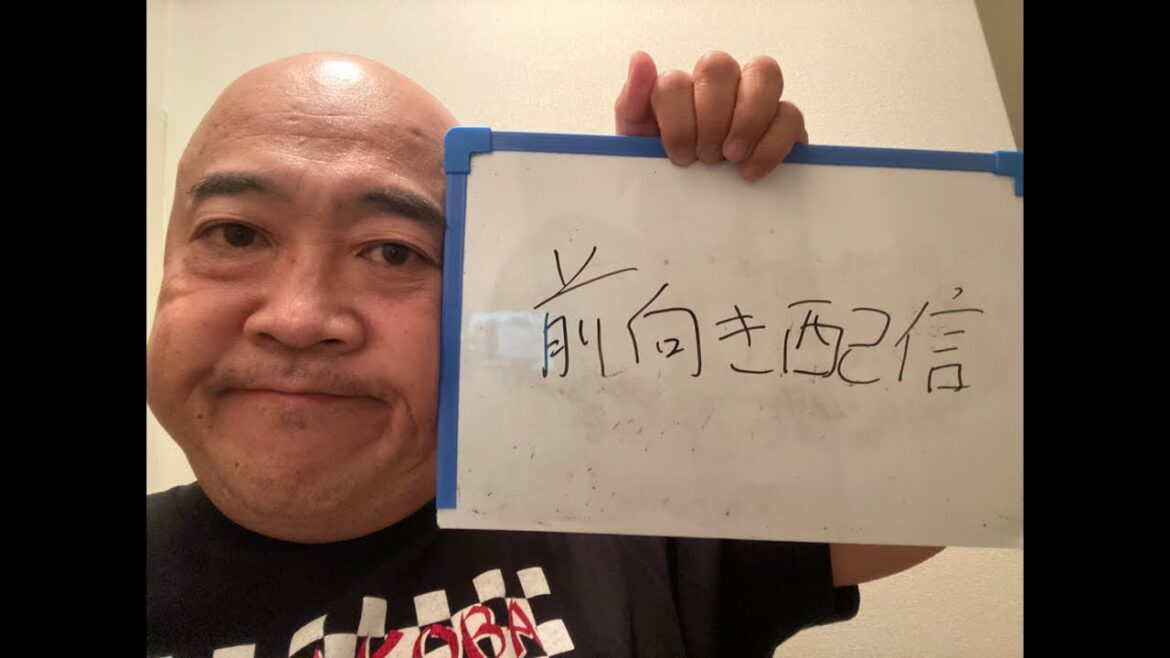 前向き配信
KOBA